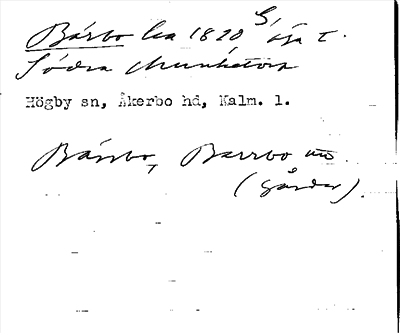 Bárbo lca 1820 S, äga t.
Södra Munketorp
Högby sn, Åkerbo hd, Kalm. l.
Bárrbo, Barrbo
(gårdar).